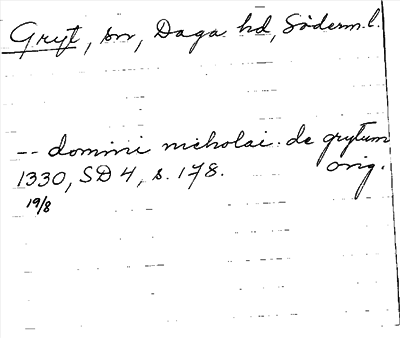 Gryt, sn, Daga hd, Söderm.l.
-- domini nicholai. de grytum
1330, SD 4, s. 178. orig.
19/8